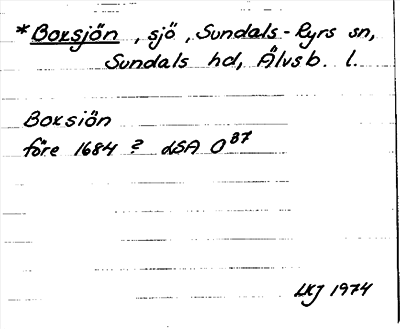 *Boksjön, sjö, Sundals-Ryrs sn,
Sundals hd, Älvsb. l.
Boksiön
före 1684 ? LSA O 87
LKJ 1974